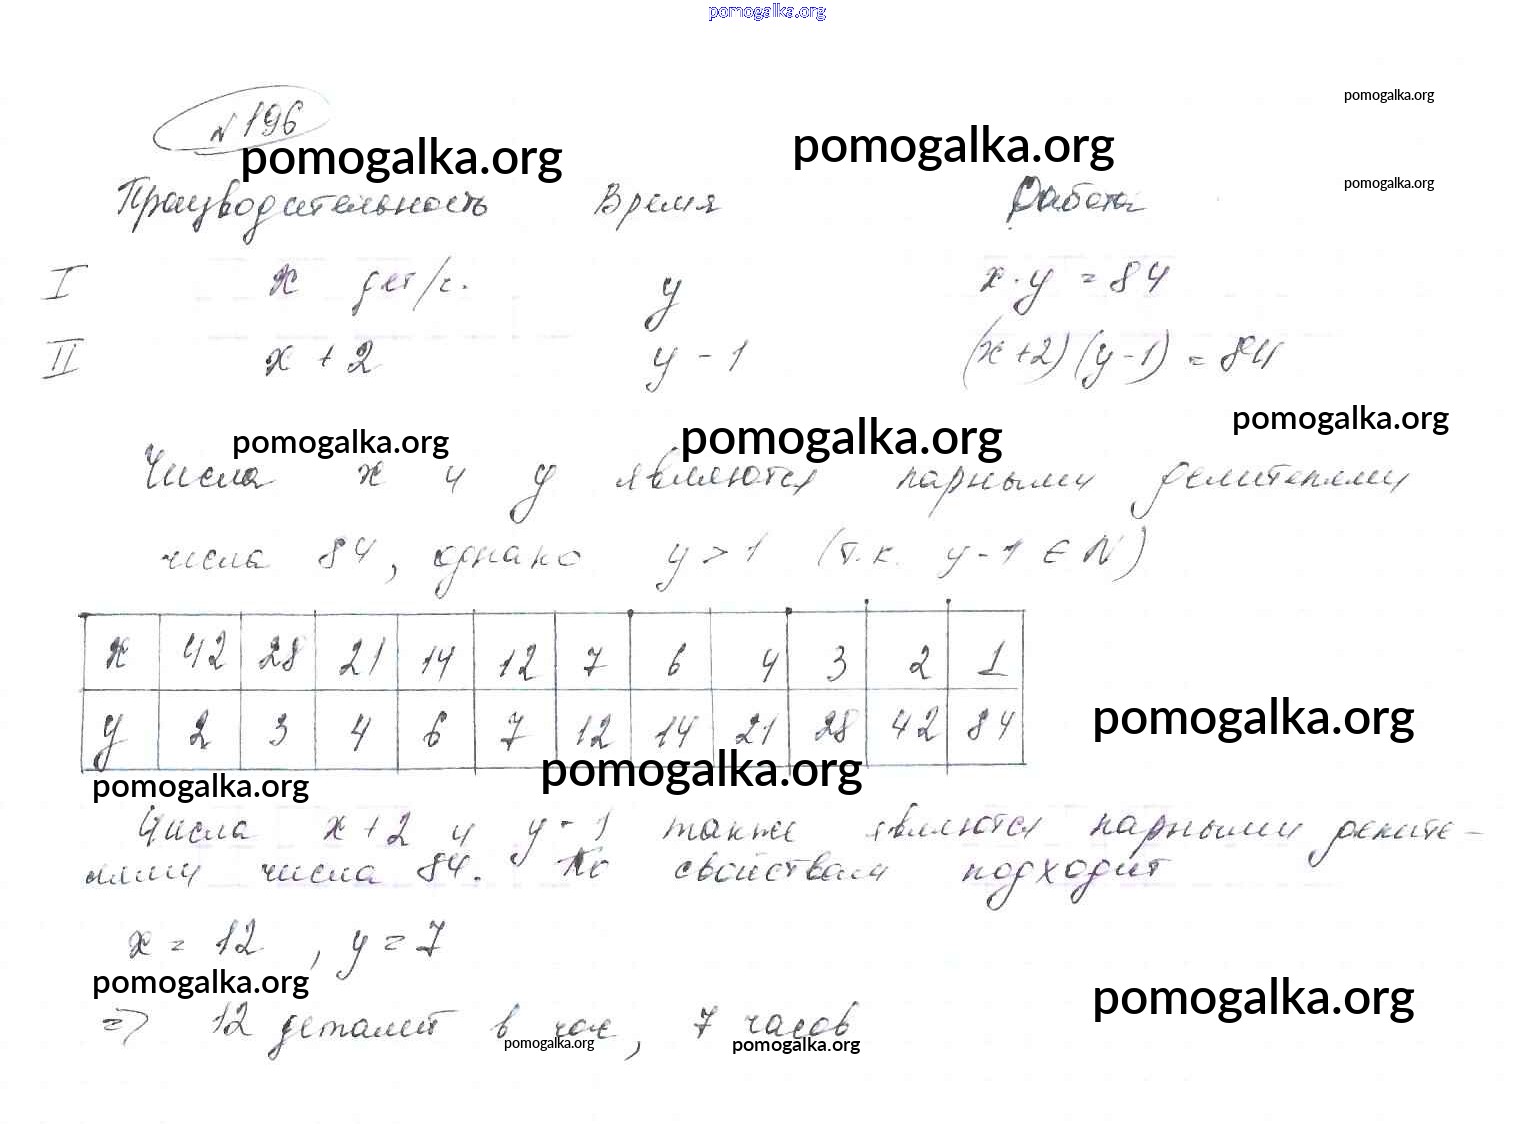 pomogalka.org
pomogalka.org
N 196
pomogalka.org pomogalka.org
pomogalka.org
Производительность Время Работа
I x дет/ч. y x · y = 84
II x + 2 y - 1 (x+2)(y-1) = 84
pomogalka.org pomogalka.org pomogalka.org
Числа x и y являются парными делителями
числа 84, однако y > 1 (т.к. y - 1 ∈ N)
x 42 28 21 14 12 7 6 4 3 2 1
y 2 3 4 6 7 12 14 21 28 42 84
pomogalka.org
pomogalka.org pomogalka.org
Числа x+2 и y-1 также являются парными делите-
лями числа 84. По свойствам подходит
x = 12, y = 7
pomogalka.org pomogalka.org
=> 12 деталей в час, 7 часов
pomogalka.org pomogalka.org